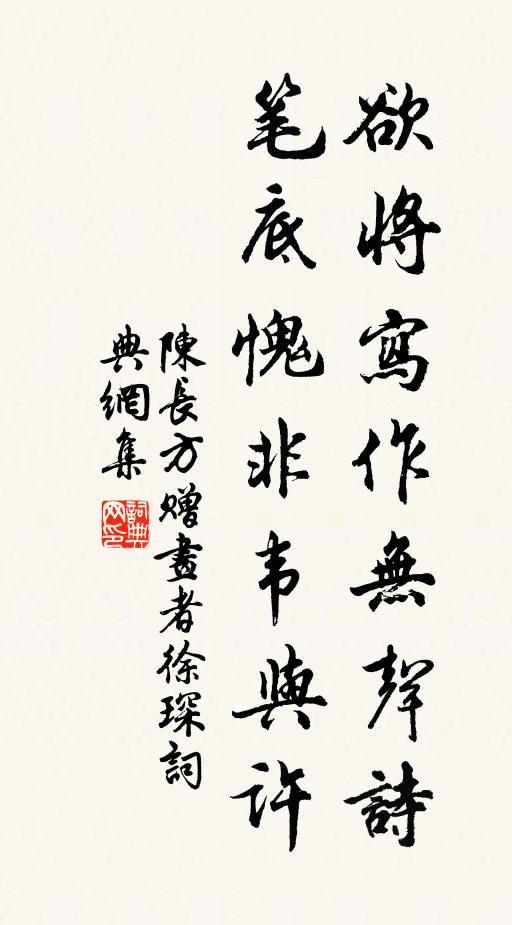 欲將寫作無聲詩
笔底愧非韦與许
陳長方赠畫者徐琛詞
典網集
詞典
网印